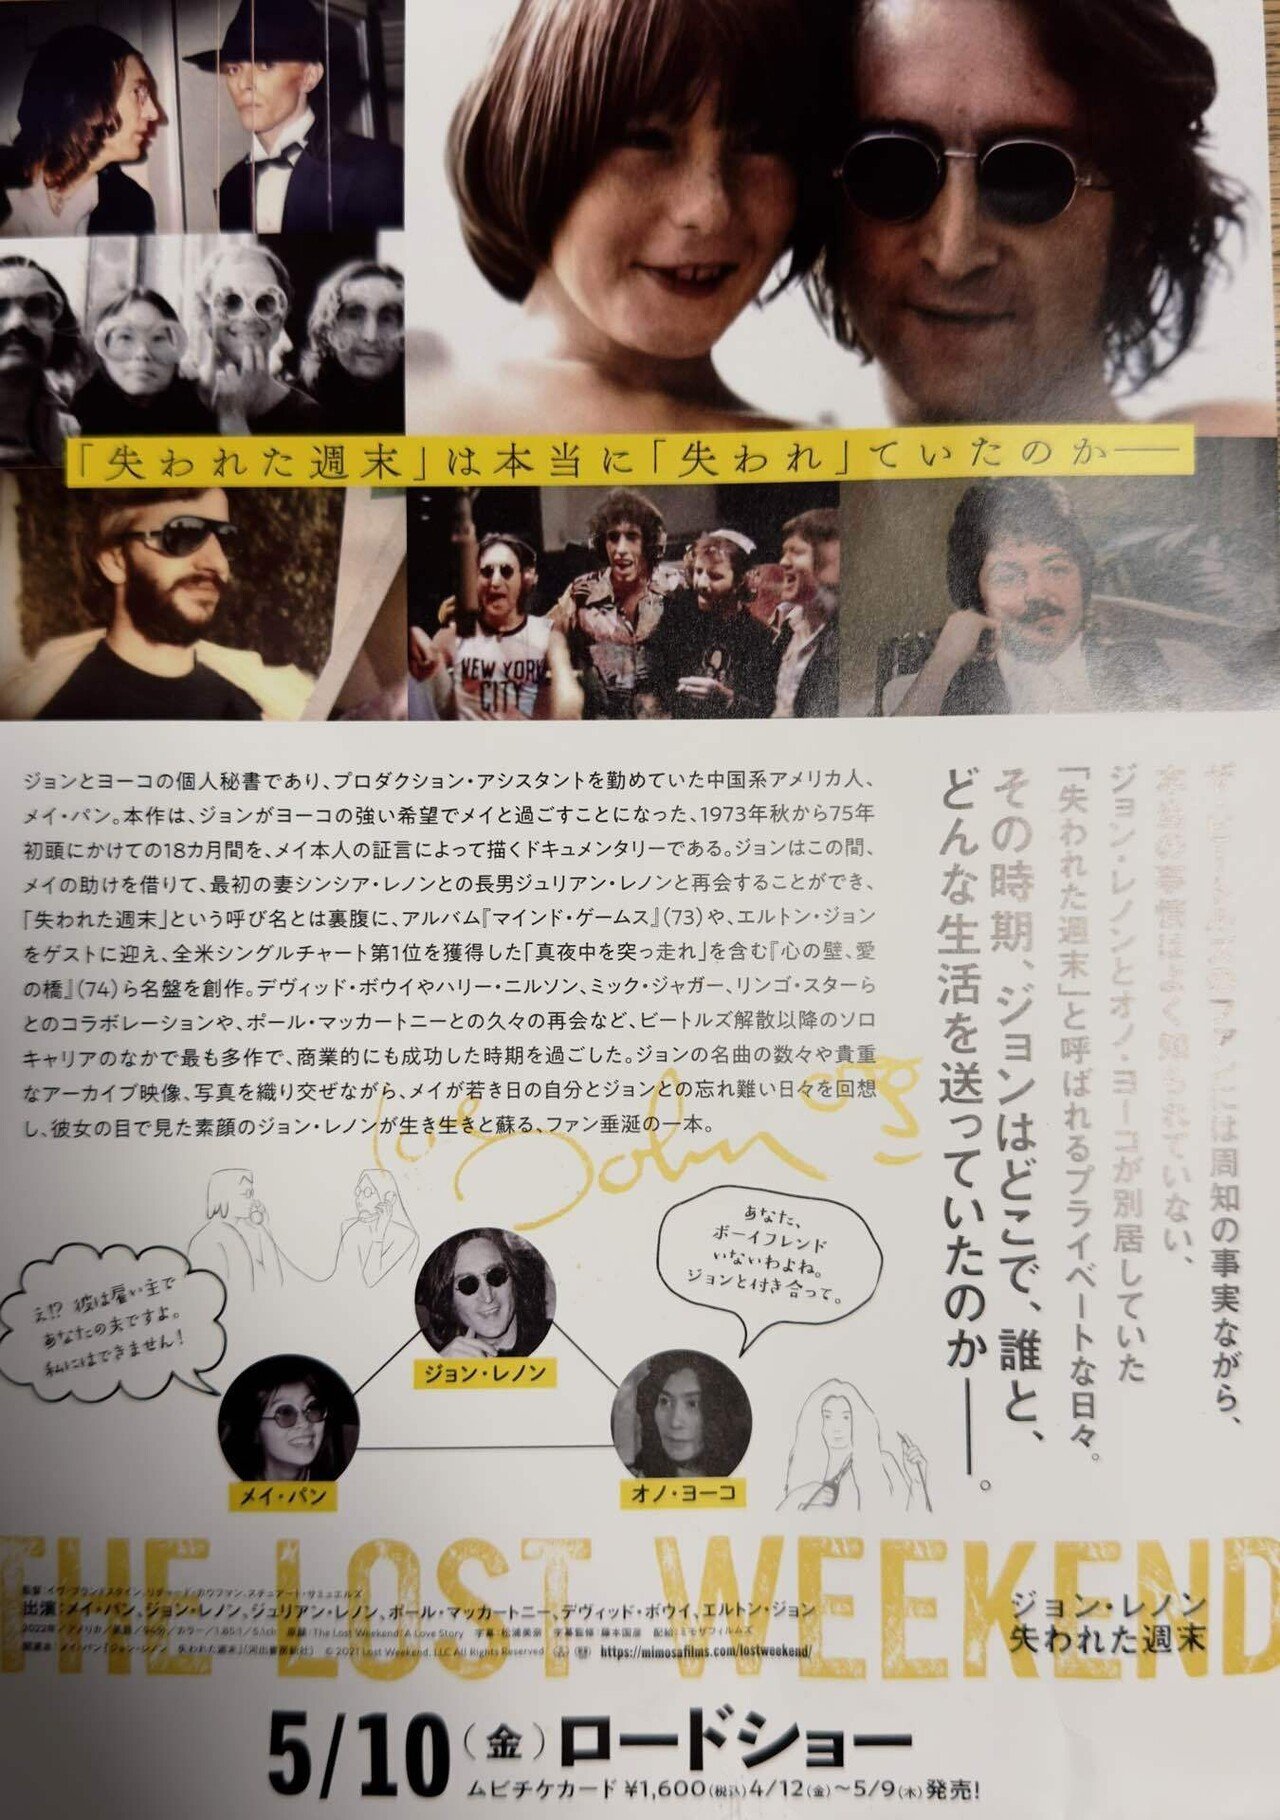 「失われた週末」は本当に「失われ」ていたのか──
NEW YORK
CITY
ジョンとヨーコの個人秘書であり、プロダクション・アシスタントを勤めていた中国系アメリカ人、
メイ・パン。本作は、ジョンがヨーコの強い希望でメイと過ごすことになった、1973年秋から75年
初頭にかけての18カ月間を、メイ本人の証言によって描くドキュメンタリーである。ジョンはこの間、
メイの助けを借りて、最初の妻シンシア・レノンとの長男ジュリアン・レノンと再会することができ、
「失われた週末」という呼び名とは裏腹に、アルバム『マインド・ゲームス』(73)や、エルトン・ジョン
をゲストに迎え、全米シングルチャート第1位を獲得した「真夜中を突っ走れ」を含む『心の壁、愛
の橋』(74)ら名盤を創作。デヴィッド・ボウイやハリー・ニルソン、ミック・ジャガー、リンゴ・スターら
とのコラボレーションや、ポール・マッカートニーとの久々の再会など、ビートルズ解散以降のソロ
キャリアのなかで最も多作で、商業的にも成功した時期を過ごした。ジョンの名曲の数々や貴重
なアーカイブ映像、写真を織り交ぜながら、メイが若き日の自分とジョンとの忘れ難い日々を回想
し、彼女の目で見た素顔のジョン・レノンが生き生きと蘇る、ファン垂涎の一本。
には周知の事実ながら、
ていない、
ジョン・レノンとオノ・ヨーコが別居していた
「失われた週末」と呼ばれるプライベートな日々。
その時期、ジョンはどこで、誰と、
どんな生活を送っていたのか──。
love John
あなた、
ボーイフレンド
いないわよね。
ジョンと付き合って。
え!? 彼は雇い主で
あなたの夫ですよ。
私にはできません!
ジョン・レノン
メイ・パン
オノ・ヨーコ
THE LOST WEEKEND
監督：イヴ・ブランドスタイン、リチャード・カウフマン、スチュアート・サミュエルズ
出演：メイ・パン、ジョン・レノン、ジュリアン・レノン、ポール・マッカートニー、デヴィッド・ボウイ、エルトン・ジョン
2022年／アメリカ／英語／96分／カラー／1.85:1／5.1ch 原題：The Lost Weekend: A Love Story 字幕：松浦美奈 字幕監修：藤本国彦 配給：ミモザフィルムズ
関連本：メイ・パン『ジョン・レノン 失われた週末』（河出書房新社） © 2021 Lost Weekend, LLC All Rights Reserved https://mimosafilms.com/lostweekend/
ジョン・レノン
失われた週末
5/10（金）ロードショー
ムビチケカード ¥1,600(税込) 4/12(金)〜5/9(木)発売！